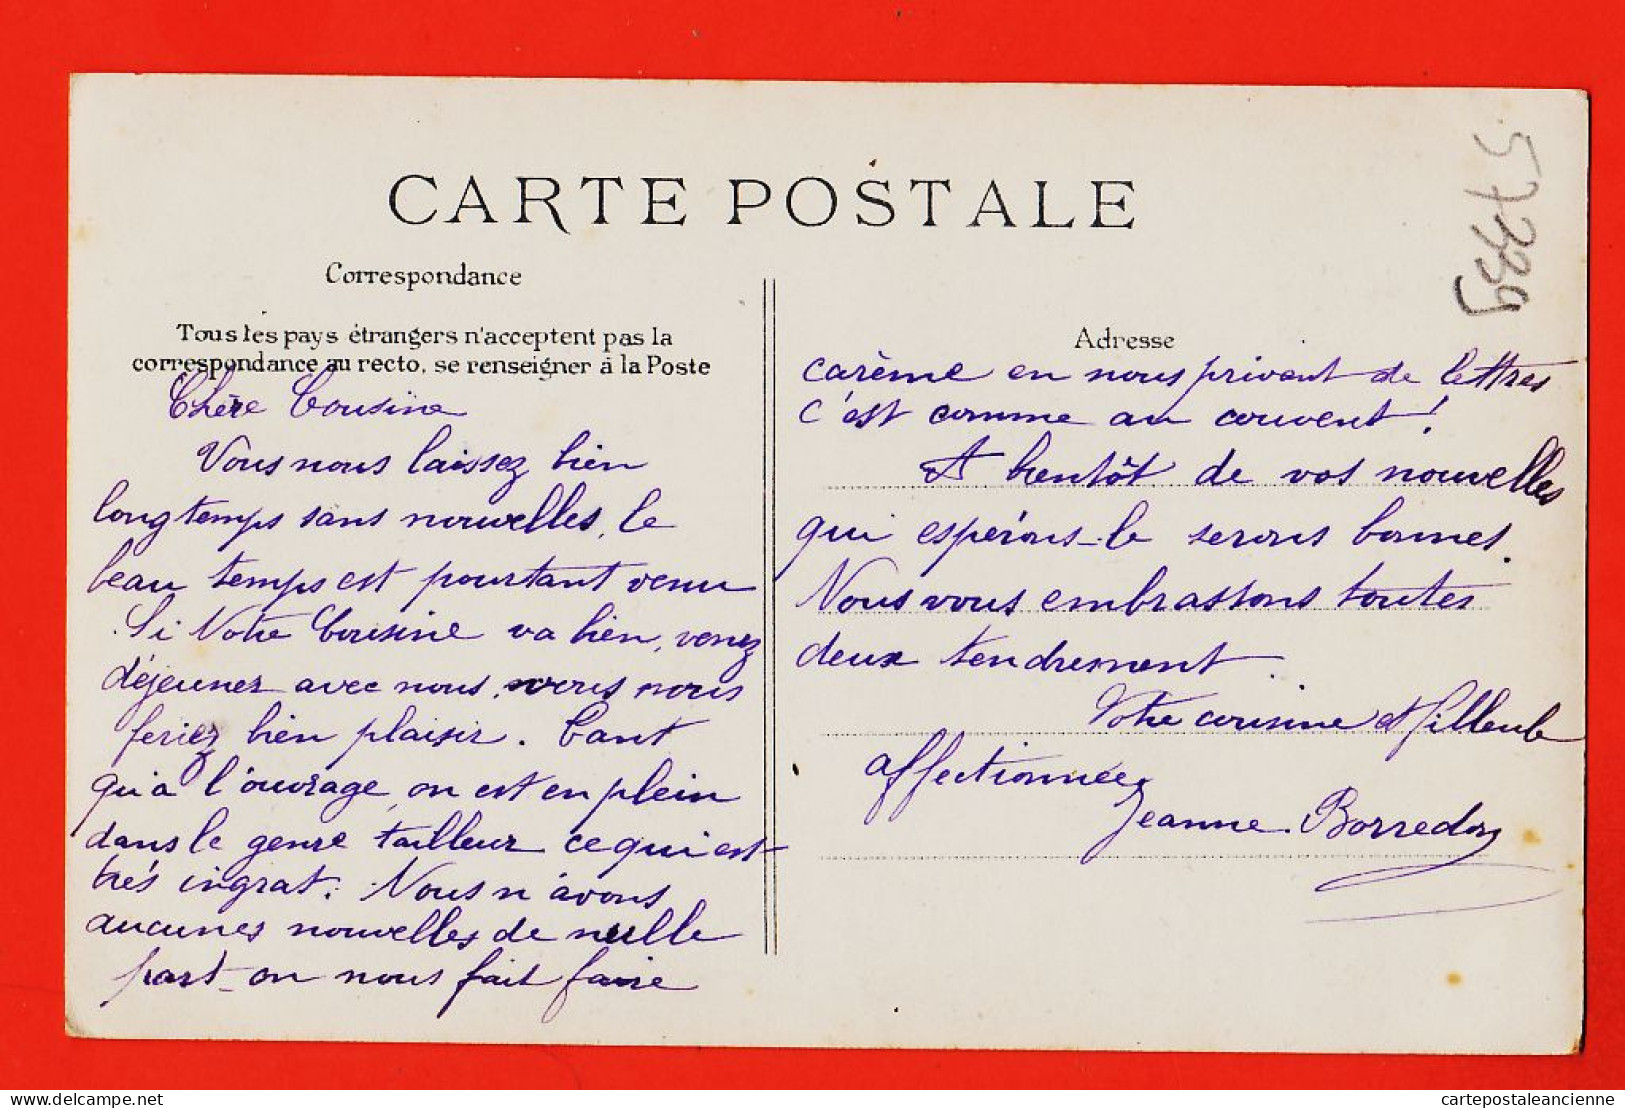 CARTE POSTALE
Correspondance
Tous les pays étrangers n'acceptent pas la
correspondance au recto, se renseigner à la Poste
Chère Cousine
Vous nous laissez bien
longtemps sans nouvelles, le
beau temps est pourtant venu
Si Votre Cousine va bien, venez
déjeuner avec nous, vous nous
feriez bien plaisir. Tant
qu'a l'ouvrage, on est en plein
dans le genre tailleur ce qui est
très ingrat. Nous n'avons
aucunes nouvelles de nulle
part - on nous fait faire
Adresse
carème en nous privant de lettres
c'est comme au couvent!
A bientôt de vos nouvelles
qui espérons-le serons bonnes.
Nous vous embrassons toutes
deux tendrement.
Votre cousine et filleule
affectionnée
Jeanne Borredon
57339
delcampe.net
cartepostaleancienne